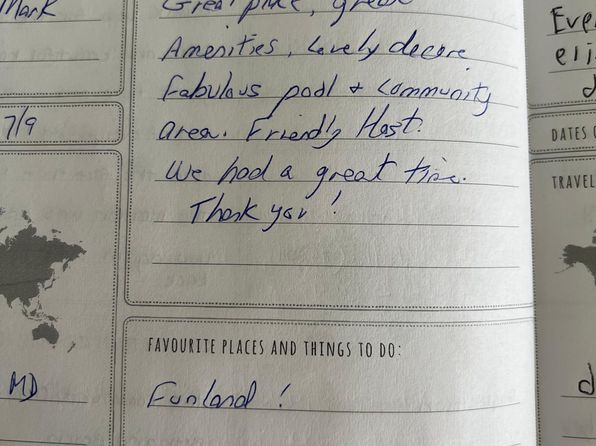 Mark
7/9
MD
Great place, great
Amenities, Lovely decore
Fabulous pool + community
area. Friendly Host.
We had a great time.
Thank you!
FAVOURITE PLACES AND THINGS TO DO:
Funland!
Eve
eli
d
DATES
TRAVEL
d